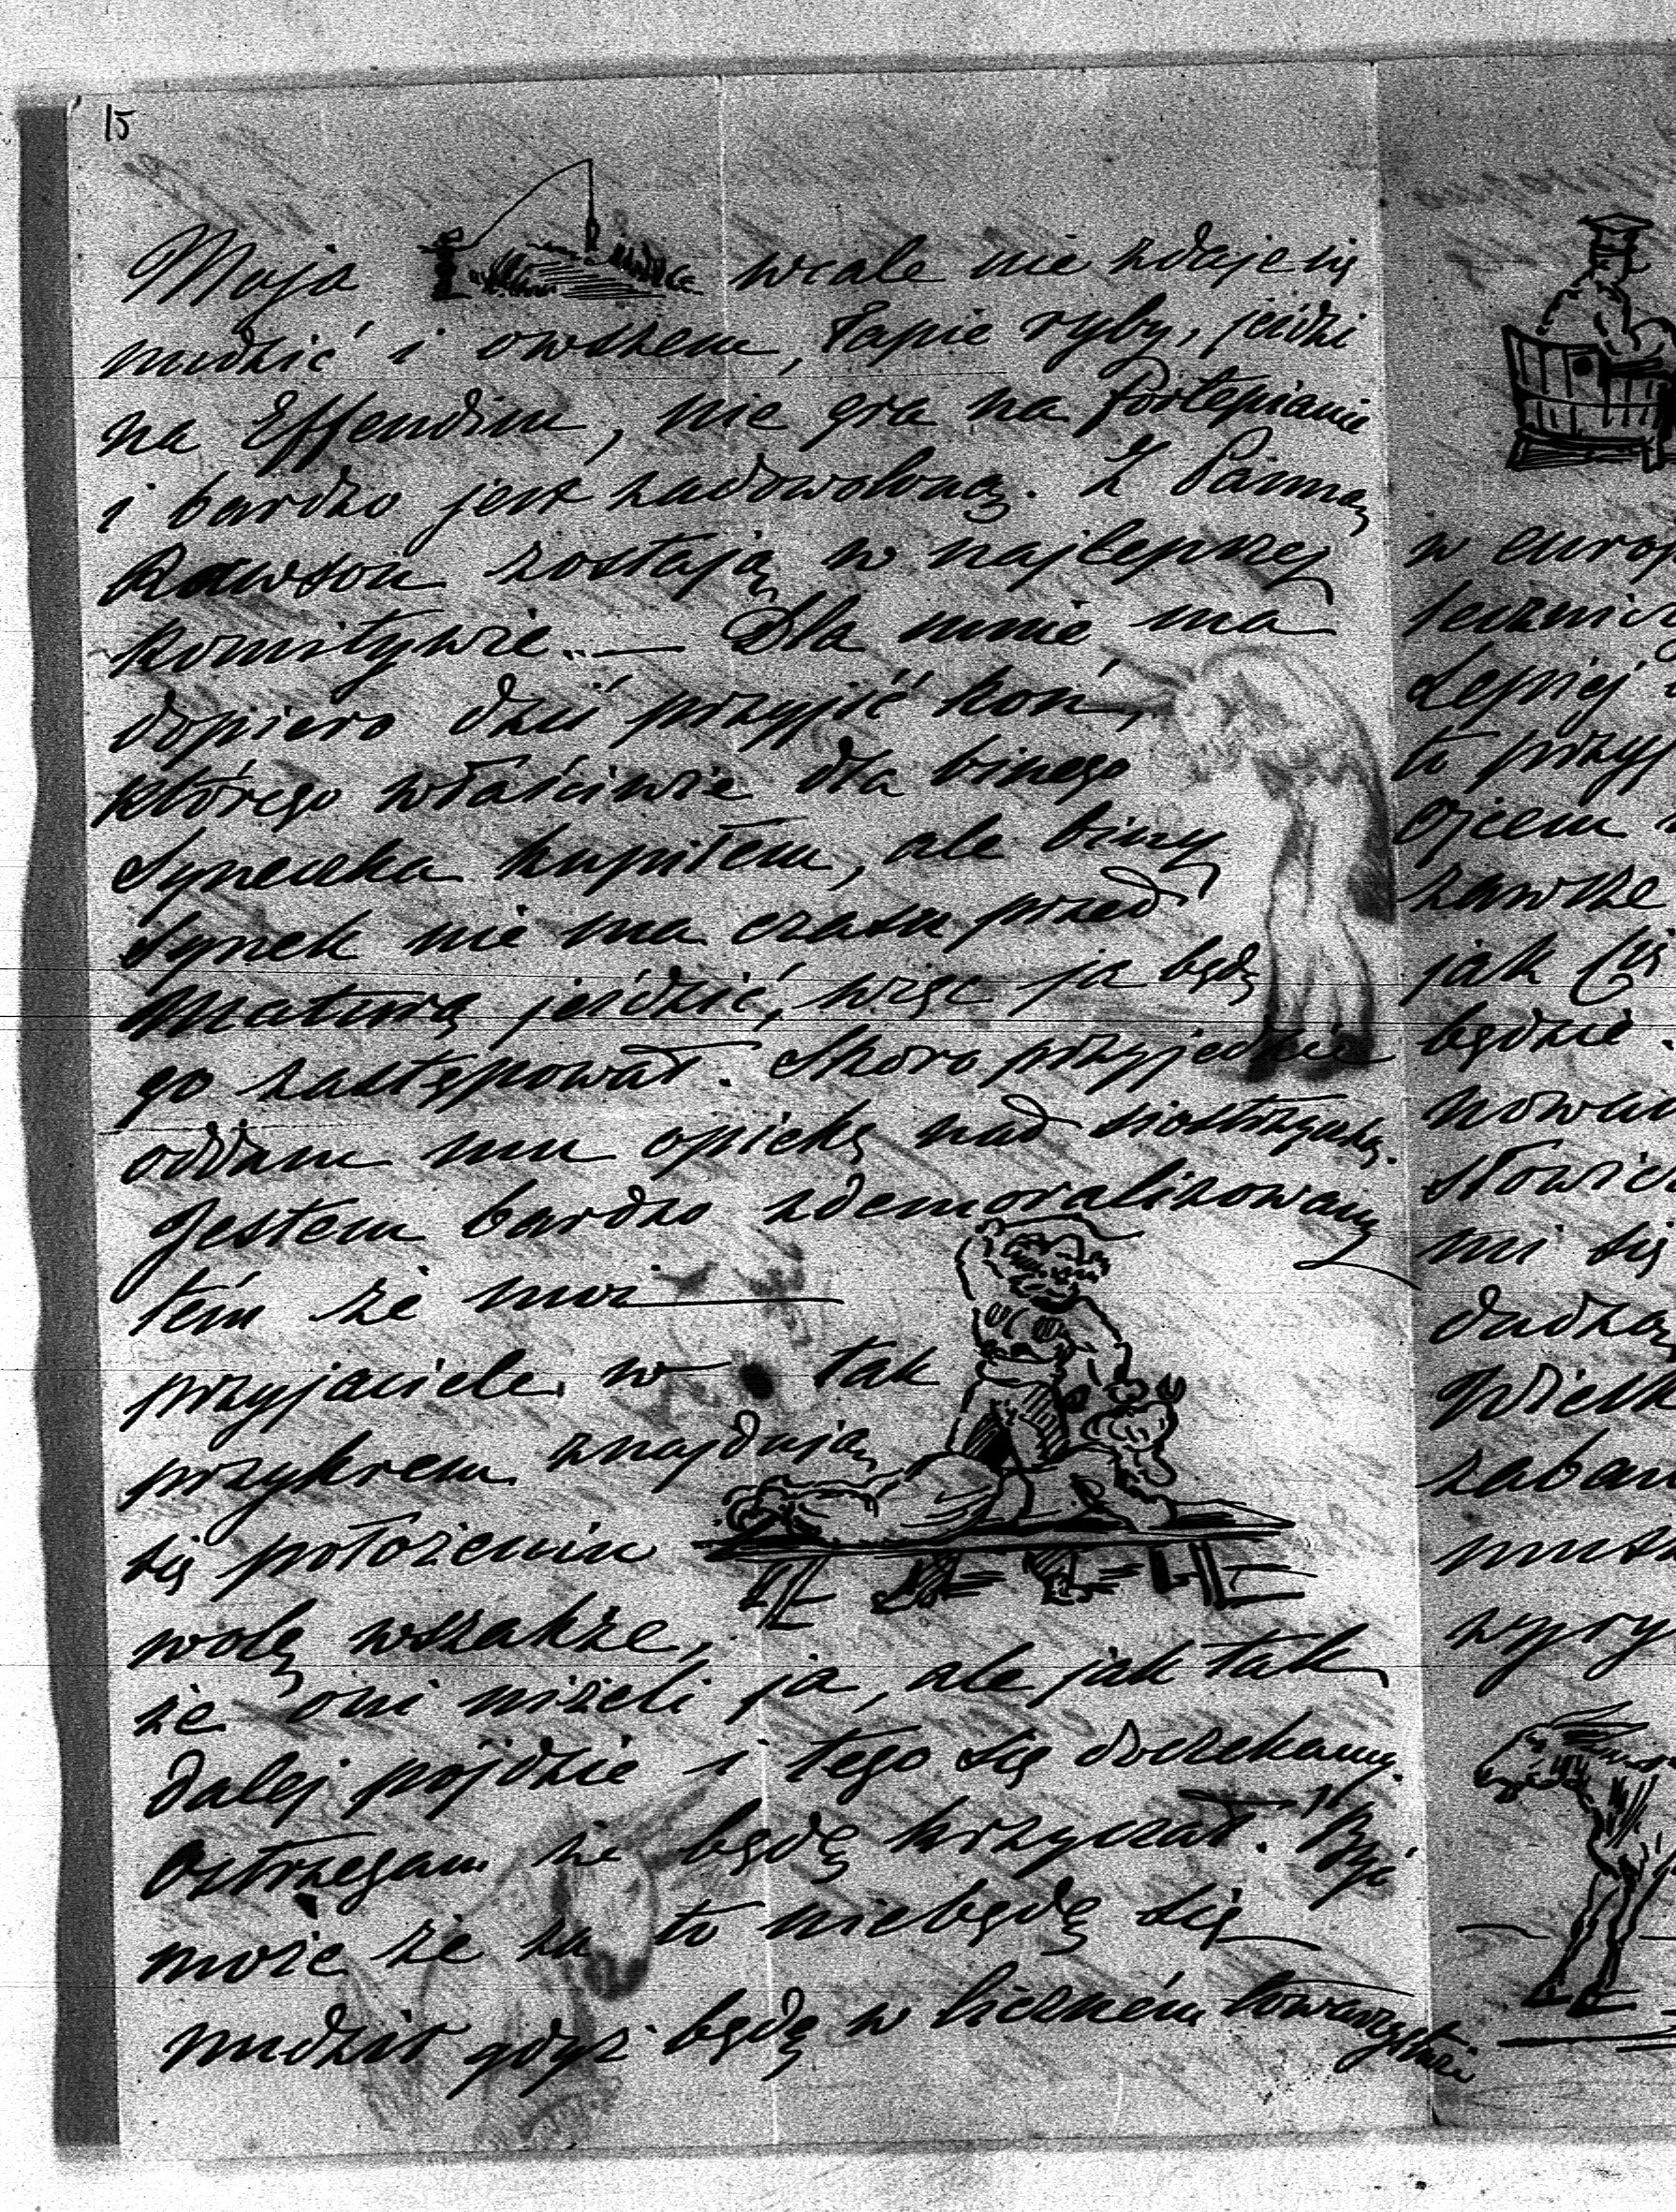 15
Moja wcale nie zdaje się
nudzić i owszem, łapie ryby, jeździ
na Effendim, nie gra na fortepianie
i bardzo jest zadowoloną. Z Panną
Rawson zostają w najlepszej
komitywie. — Dla mnie ma
dopiero dziś przyjść koń,
którego właściwie dla binego
Syneczka kupiłem, ale biny
Synek nie ma czasu przed
Maturą jeździć, więc ja będę
go zastępował. Skoro przyjedzie
oddam mu opiekę nad siostrzyczką.
Jestem bardzo zdemoralizowany
tém że moi
przyjaciele w tak
przykrem znajdują
się położeniu
wolę wszakże,
że oni niżeli ja, ale jak tak
dalej pójdzie i tego się doczekamy.
Ostrzegam że będę krzyczał. Być
może że za to niebędę się
nudził gdyż będę w liczném towarzystwie
w europ
Lepiej
to przyj
ojcem
zawsze
jak się
będzie.
nowa
słowic
mi się
dadzą
Wielk
zabaw